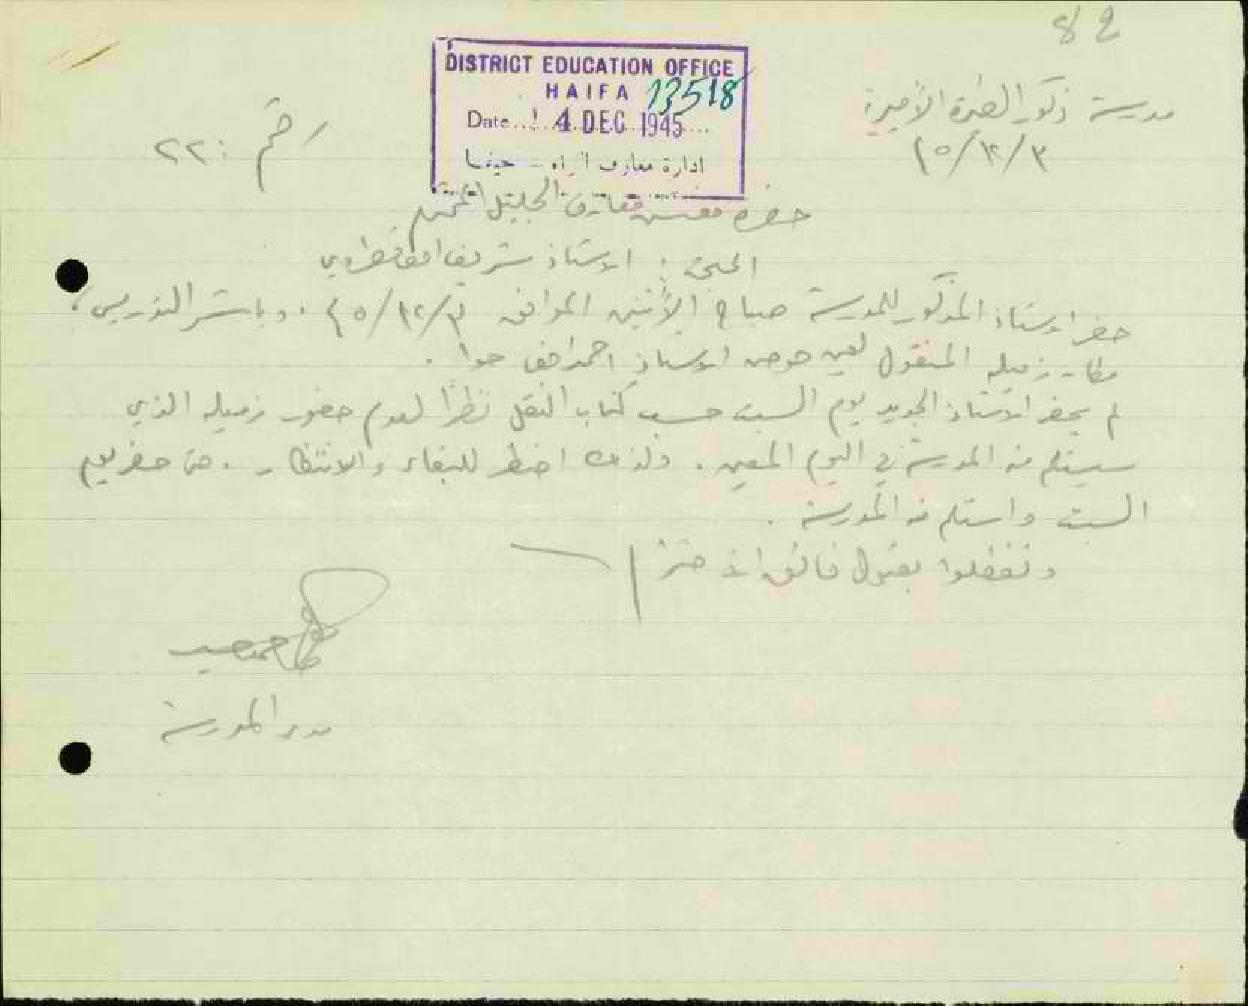 82
مدرسة ذكور الطيرة الأميرية
٤٥/١٢/٣
رقم : ٢٢
DISTRICT EDUCATION OFFICE
HAIFA 13518
Date... 4 DEC 1945...
ادارة معارف لواء حيفا
حضرة مفتش معارف الجليل المحترم
المبحث : الاستاذ شريف
حضر الاستاذ المذكور للمدرسة صباح الأثنين الموافق ٤٥/١٢/٣ . وباشر التدريس،
مكان زميله المنقول لعين حوض الاستاذ احمد
لم يحضر الاستاذ الجديد يوم السبت حسب كتاب النقل نظراً لعدم حضور زميله الذي
سيستلم منه المدرسة في اليوم المعين . ولذلك اضطر للبقاء والانتظار . حتى حضر يوم
السبت واستلم منه المدرسة .
وتفضلوا بقبول فائق الاحترام
مدير المدرسة